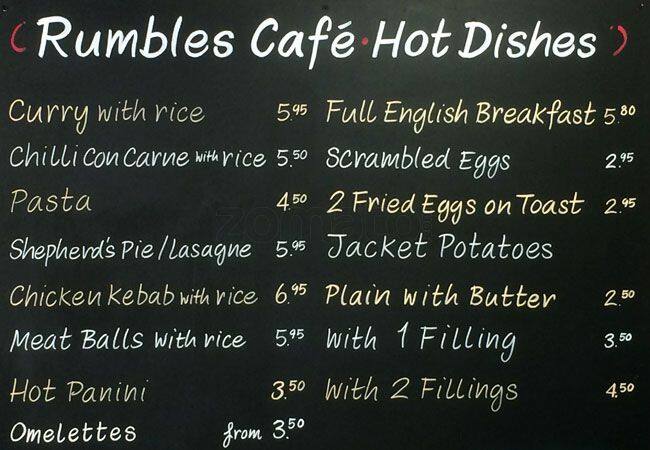 Rumbles Café · Hot Dishes
Curry with rice 5.95
Chilli Con Carne with rice 5.50
Pasta 4.50
Shepherd's Pie / Lasagne 5.95
Chicken Kebab with rice 6.95
Meat Balls with rice 5.95
Hot Panini 3.50
Omelettes from 3.50
Full English Breakfast 5.80
Scrambled Eggs 2.95
2 Fried Eggs on Toast 2.95
Jacket Potatoes
Plain with Butter 2.50
with 1 Filling 3.50
with 2 Fillings 4.50